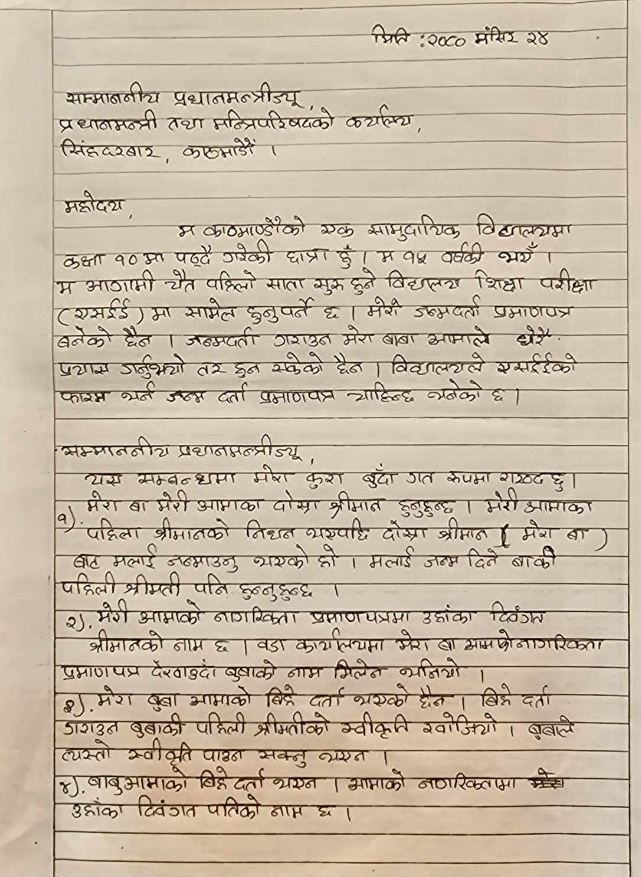 मिति : २०८० मंसिर २४
सम्माननीय प्रधानमन्त्रीज्यू,
प्रधानमन्त्री तथा मन्त्रिपरिषदको कार्यालय,
सिंहदरबार, काठमाडौं ।
महोदय,
म काठमाण्डौको एक सामुदायिक विद्यालयमा
कक्षा १० मा पढ्दै गरेकी छात्रा हुँ । म १५ वर्षकी भएँ ।
म आगामी चैत पहिलो साता सुरु हुने विद्यालय शिक्षा परीक्षा
(एसईई) मा सामेल हुनुपर्ने छ । मेरो जन्मदर्ता प्रमाणपत्र
बनेको छैन । जन्मदर्ता गराउन मेरा बाबा आमाले धेरै
प्रयास गर्नुभयो तर हुन सकेको छैन । विद्यालयले एसईईको
फारम भर्न जन्म दर्ता प्रमाणपत्र चाहिन्छ भनेको छ ।
सम्माननीय प्रधानमन्त्रीज्यू,
यस सम्बन्धमा मेरा कुरा बुँदा गत रुपमा राख्दछु ।
१) मेरा बा मेरी आमाका दोस्रा श्रीमान हुनुहुन्छ । मेरी आमाका
पहिला श्रीमानको निधन भएपछि दोस्रा श्रीमान ( मेरा बा )
बाट मलाई जन्माउनु भएको हो । मलाई जन्म दिने बाकी
पहिली श्रीमती पनि हुनुहुन्छ ।
२). मेरी आमाको नागरिकता प्रमाणपत्रमा उहाँका दिवंगत
श्रीमानको नाम छ । वडा कार्यालयमा मेरा बा आमाको नागरिकता
प्रमाणपत्र देखाउदा बुबाको नाम मिलेन भनियो ।
३). मेरा बुबा आमाको बिहे दर्ता भएको छैन । बिहे दर्ता
गराउन बुबाकी पहिली श्रीमतीको स्वीकृति खोजियो । बुबाले
त्यस्तो स्वीकृति पाउन सक्नु भएन ।
४). बाबुआमाको बिहे दर्ता भएन । आमाको नागरिकतामा
उहाँका दिवंगत पतिको नाम छ ।